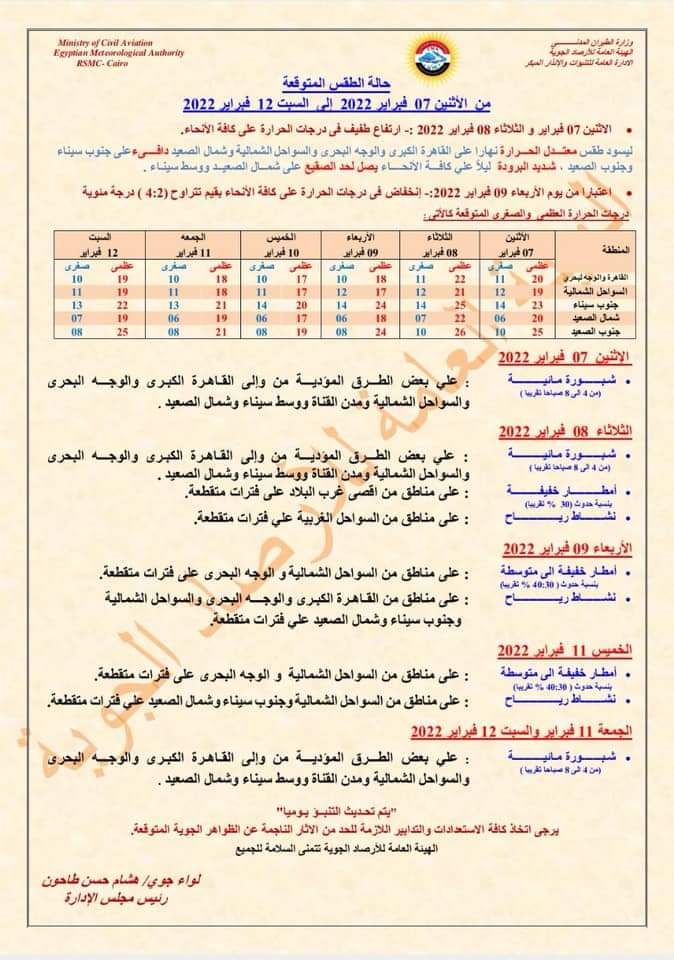 Ministry of Civil Aviation
Egyptian Meteorological Authority
RSMC- Cairo
وزارة الطيران المدنـــــــي
الهيئة العامة للأرصاد الجوية
الادارة العامة للتنبؤات والإنذار المبكر
حالة الطقس المتوقعة
من الأثنين 07 فبراير 2022 إلى السبت 12 فبراير 2022
• الاثنين 07 فبراير و الثلاثاء 08 فبراير 2022 :- ارتفاع طفيف فى درجات الحرارة على كافة الأنحاء.
ليسود طقس معتــدل الحــرارة نهارا على القاهرة الكبرى والوجه البحرى والسواحل الشمالية وشمال الصعيد دافــىء على جنوب سيناء
وجنوب الصعيد ، شديد البرودة ليلاً علي كافـــة الأنحـــاء يصل لحد الصقيع على شمــال الصعيــد ووسط سيناء .
• اعتبارا من يوم الأربعاء 09 فبراير 2022:- إنخفاض فى درجات الحرارة على كافة الأنحاء بقيم تتراوح (4:2) درجة مئوية
درجات الحرارة العظمى والصغرى المتوقعة كالأتي:
المنطقة الأثنين 07 فبراير الثلاثاء 08 فبراير الأربعاء 09 فبراير الخميس 10 فبراير الجمعه 11 فبراير السبت 12 فبراير
عظمى صغرى عظمى صغرى عظمى صغرى عظمى صغرى عظمى صغرى عظمى صغرى
القاهرة والوجه لبحرى 20 11 22 11 18 10 17 10 18 10 19 10
السواحل الشمالية 19 12 21 12 17 12 17 11 18 11 19 11
جنوب سيناء 23 14 25 14 24 14 20 14 21 13 22 13
شمال الصعيد 20 06 22 07 18 06 17 06 19 06 19 07
جنوب الصعيد 25 10 26 10 24 08 19 08 21 08 25 08
الاثنين 07 فبراير 2022
• شبـــورة مـائيـــــة : علي بعض الطـرق المؤديـة من وإلى القـاهـرة الكبـرى والوجـــه البحرى
(من 4 الى 8 صباحا تقريبا ) والسواحل الشمالية ومدن القناة ووسط سيناء وشمال الصعيد .
الثلاثاء 08 فبراير 2022
• شبـــورة مـائيـــــة : علي بعض الطـرق المؤديـة من وإلى القـاهـرة الكبـرى والوجـــه البحرى
(من 4 الى 8 صباحا تقريبا ) والسواحل الشمالية ومدن القناة ووسط سيناء وشمال الصعيد .
• أمطــار خفيفــة : على مناطق من اقصى غرب البلاد على فترات متقطعة.
بنسبة حدوث (30 % تقريبا)
• نشـــاط ريـــاح : على مناطق من السواحل الغربية علي فترات متقطعة.
الأربعاء 09 فبراير 2022
• أمطار خفيفة الى متوسطة : على مناطق من السواحل الشمالية و الوجه البحرى على فترات متقطعة.
بنسبة حدوث ( 40:30 % تقريبا)
• نشـــاط ريـــاح : على مناطق من القـاهـرة الكبـرى والوجـــه البحرى والسواحل الشمالية
وجنوب سيناء وشمال الصعيد علي فترات متقطعة.
الخميس 11 فبراير 2022
• أمطار خفيفة الى متوسطة : على مناطق من السواحل الشمالية و الوجه البحرى على فترات متقطعة.
بنسبة حدوث ( 40:30 % تقريبا)
• نشـــاط ريـــاح : على مناطق من السواحل الشمالية وجنوب سيناء وشمال الصعيد علي فترات متقطعة.
الجمعة 11 فبراير والسبت 12 فبراير 2022
• شبـــورة مـائيـــــة : علي بعض الطـرق المؤديـة من وإلى القـاهـرة الكبـرى والوجـــه البحرى
(من 4 الى 8 صباحا تقريبا ) والسواحل الشمالية ومدن القناة ووسط سيناء وشمال الصعيد .
"يتم تحديث التنبؤ يوميا"
يرجى اتخاذ كافة الاستعدادات والتدابير اللازمة للحد من الاثار الناجمة عن الظواهر الجوية المتوقعة.
الهيئة العامة للأرصاد الجوية تتمنى السلامة للجميع
لواء جوي/ هشام حسن طاحون
رئيس مجلس الإدارة